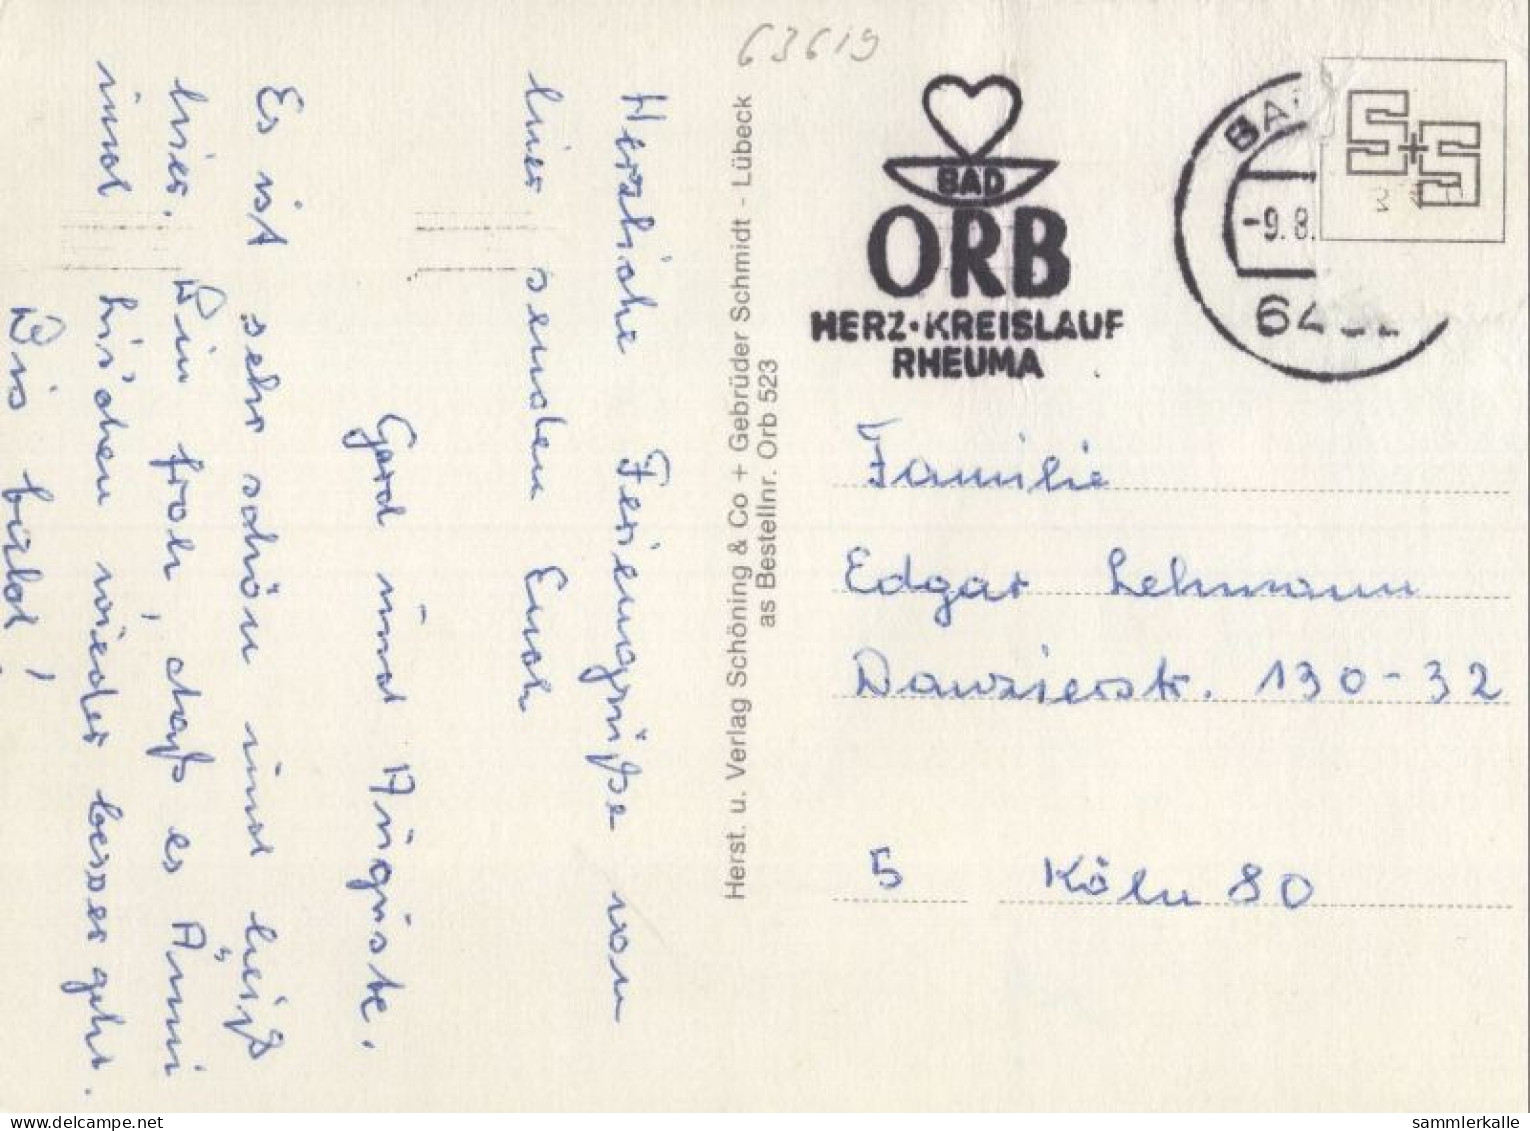 Herzliche Feriengrüße von
hier senden Euch
Gerd und Auguste.
Es ist sehr schön und heiß
hier. Wir froh, daß es Änni
und Lischen wieder besser geht.
Bis bald!
63619
Herst. u. Verlag Schöning & Co + Gebrüder Schmidt - Lübeck
as Bestellnr. Orb 523
BAD
ORB
HERZ·KREISLAUF
RHEUMA
BA
-9.8.
64
S+S
Familie
Edgar Lehmann
Danzierstr. 130-32
5 Köln 80
sammlerkalle